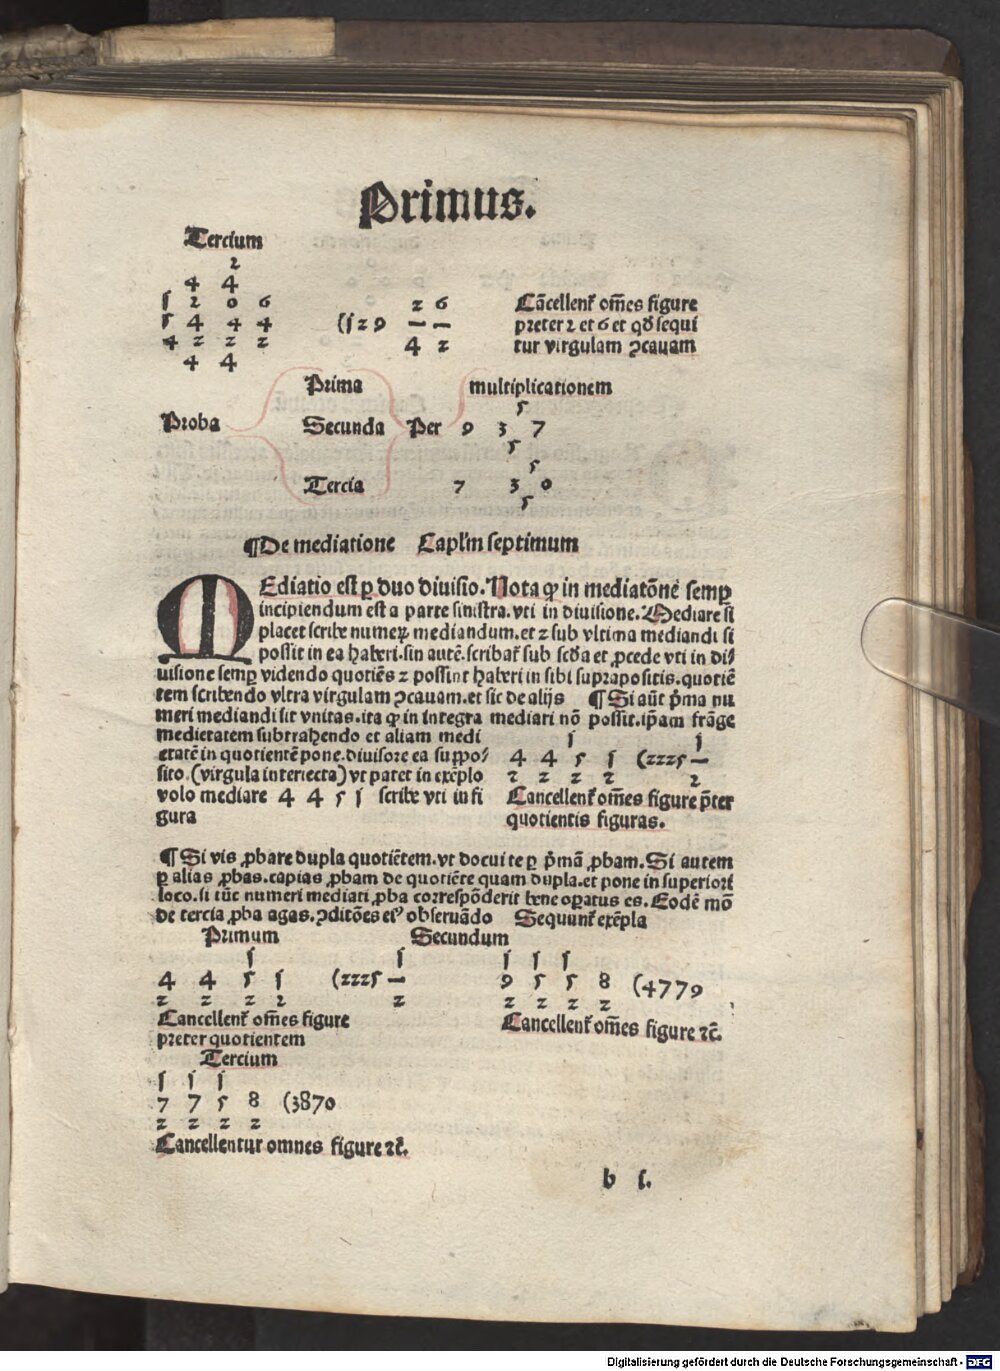 Primus.
Tercium
2
4 4
ſ 2 0 6
5 4 4 4 (ſ29 2 6
— —
4 2
4 2 2 2
4 4
Cācellent᷑ om̄es figure
preter 2 et 6 et qd̄ sequi
tur virgulam ꝯcauam
Prima multiplicationem
Proba Secunda Per 9 5 3 5 7
Tercia 7 5 3 5 0
¶De mediatione Capl'm septimum
MEdiatio est ꝑ duo diuisio. Nota ꝙ in mediatōne semꝑ
incipiendum est a parte sinistra. vti in diuisione. Mediare si
placet scribe numeꝝ mediandum. et 2 sub vltima mediandi si
possit in ea haberi. sin autē. scribat᷑ sub scd̄a et ꝓcede vti in di⸗
uisione semꝑ videndo quotiēs 2 possint haberi in sibi suprapositis. quotiē
tem scribendo vltra virgulam ꝯcauam. et sic de alijs ¶ Si aūt p̄ma nu
meri mediandi sit vnitas. ita ꝙ in integra mediari nō possit. ip̄am frāge
medietatem subtrahendo et aliam medi
etatē in quotientē pone. diuisore ea suppo⸗
sito (virgula interiecta) vt patet in exēplo
volo mediare 4 4 5 ſ scribe vti in fi
gura
ſ ſ
4 4 5 ſ (2225 —
2 2 2 2 2
Cancellent᷑ om̄es figure p̄ter
quotientis figuras.
¶ Si vis ꝓbare dupla quotiētem. vt docui te ꝑ p̄mā ꝓbam. Si autem
ꝑ alias ꝓbas. capias ꝓbam de quotiēte quam dupla. et pone in superiori
loco. si tūc numeri mediati ꝓba correspōderit bene oꝑatus es. Eodē mō
de tercia ꝓba agas. ꝯditōes eiꝰ obseruādo Sequunt᷑ exēpla
Primum Secundum
ſ ſ
4 4 5 ſ (2225 —
2 2 2 2 2
Cancellent᷑ om̄es figure
preter quotientem
ſ ſ ſ
9 5 5 8 (4779
2 2 2 2
Cancellent᷑ om̄es figure ⁊c̄.
Tercium
ſ ſ ſ
7 7 5 8 (3870
2 2 2 2
Cancellentur omnes figure ⁊c̄.
b ſ.
Digitalisierung gefördert durch die Deutsche Forschungsgemeinschaft - DFG